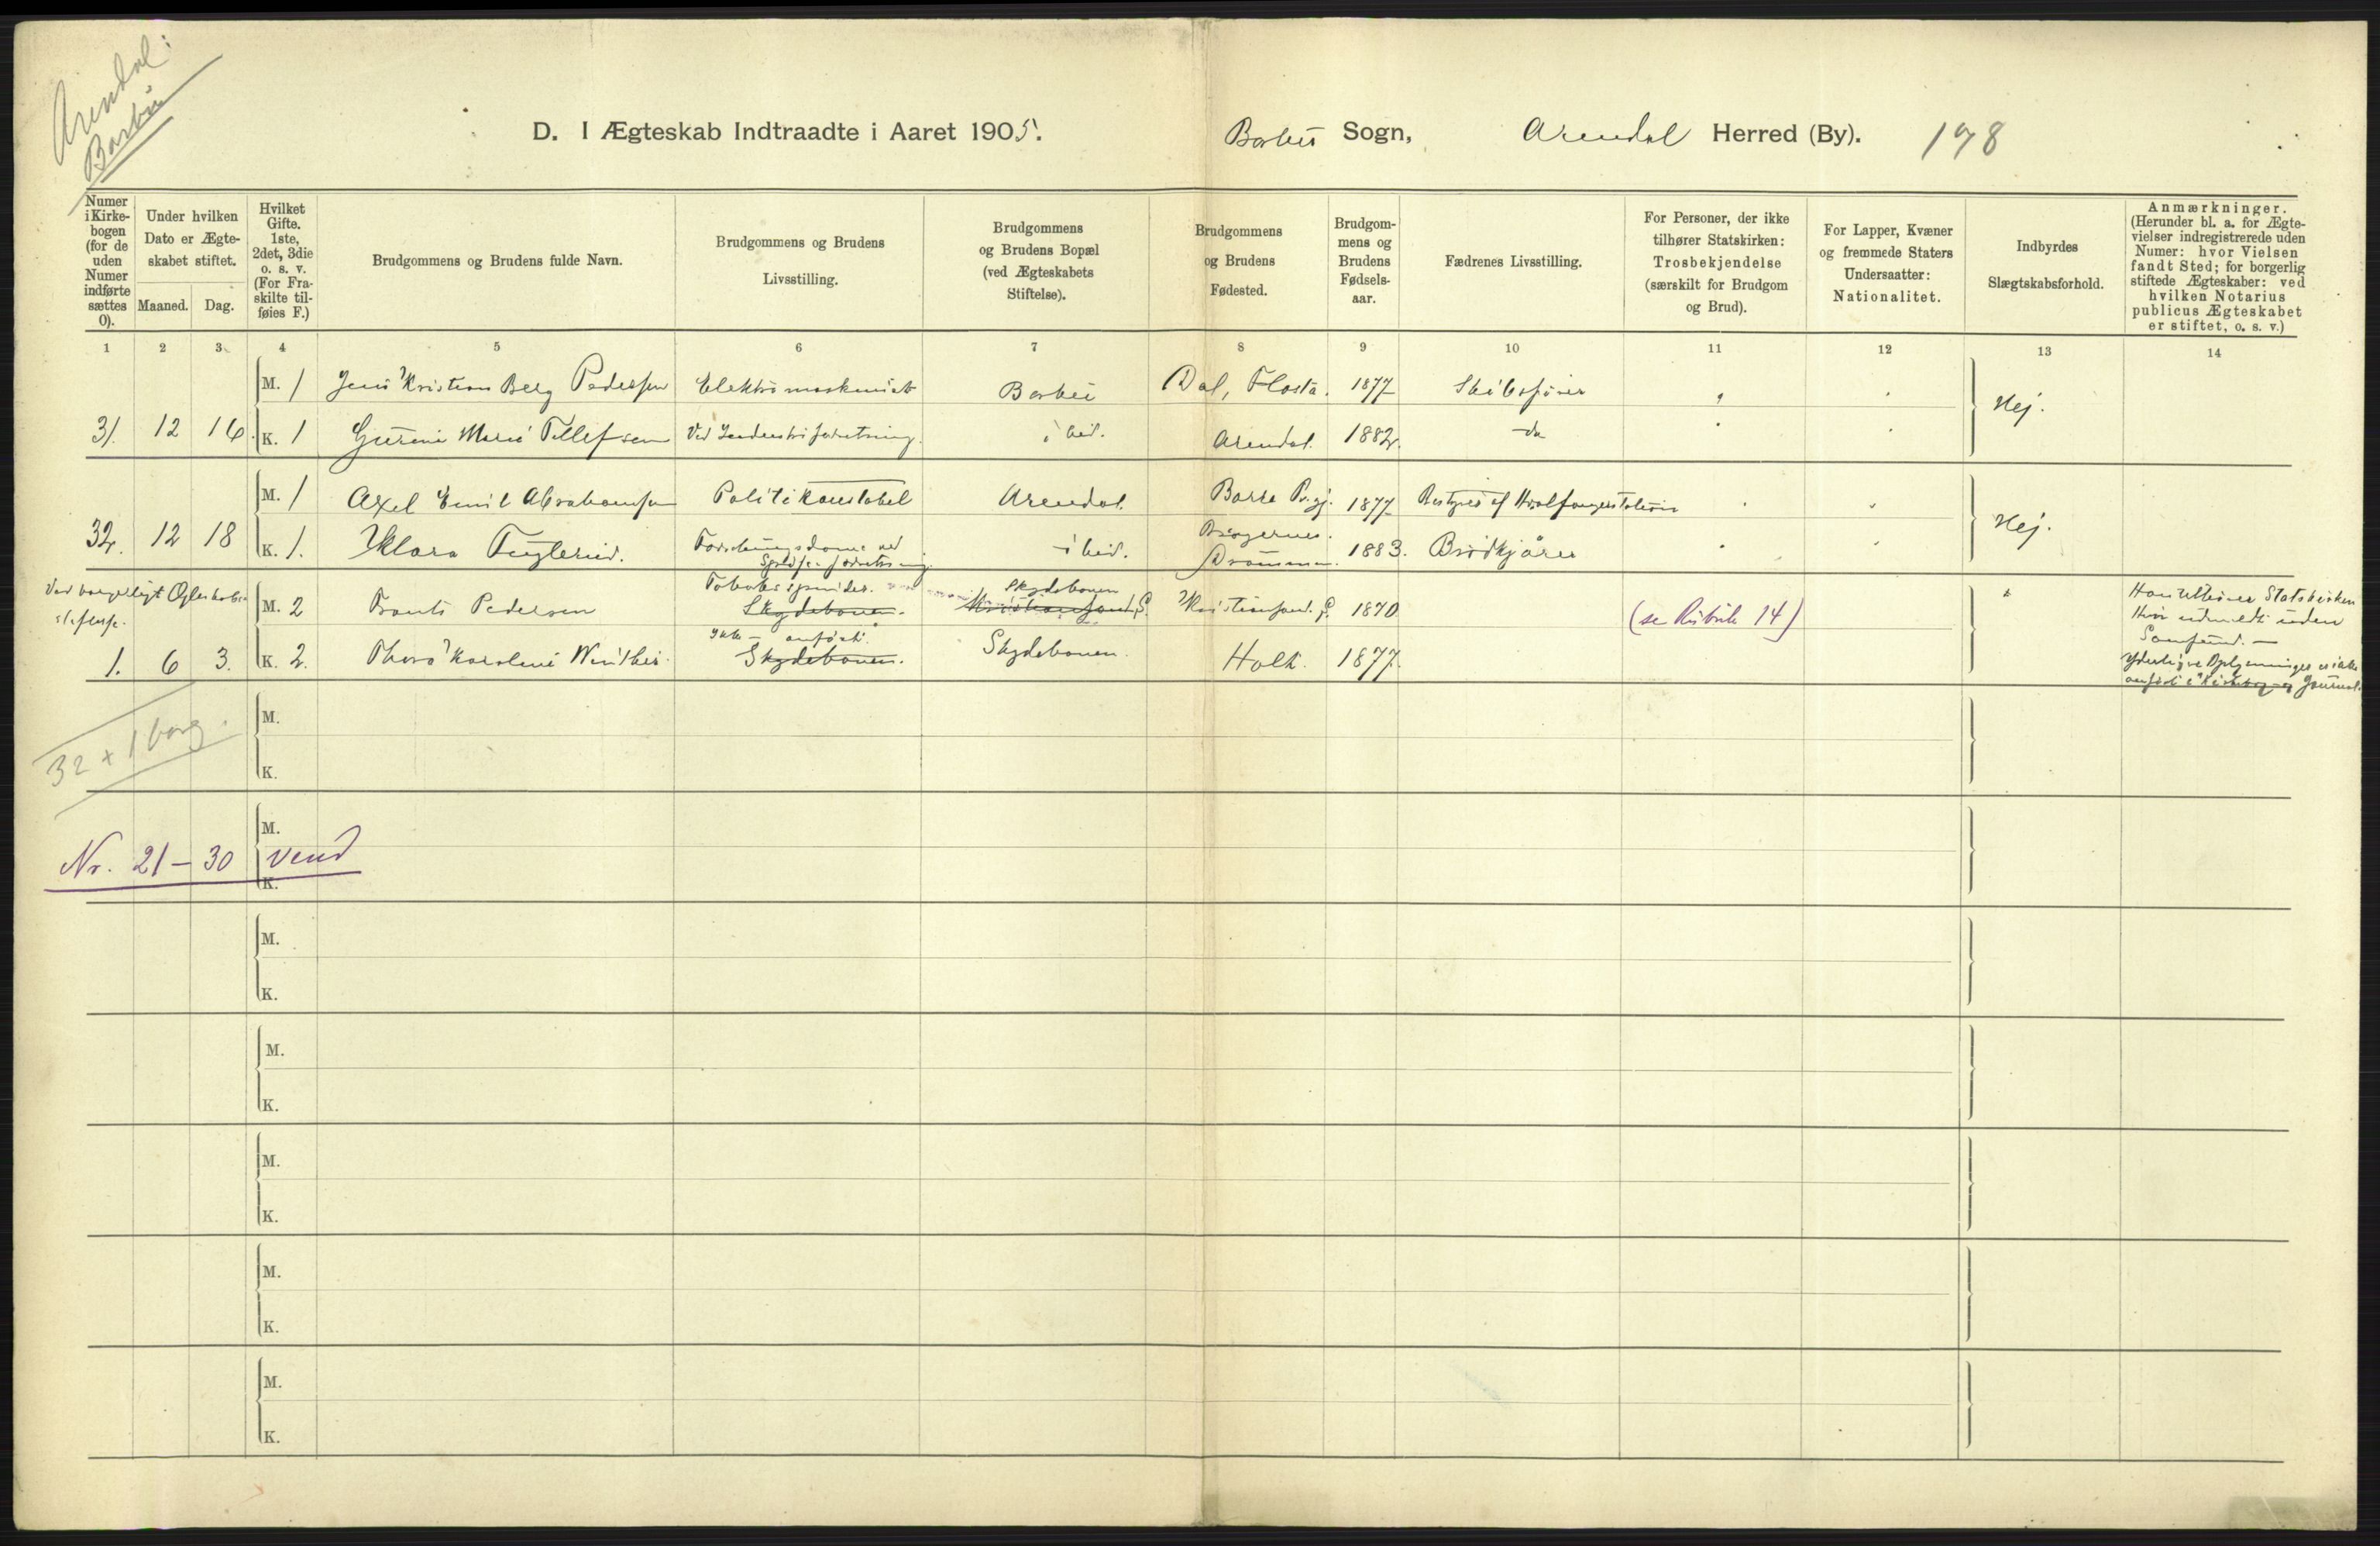 Arendal:
Barbu
D. I Ægteskab Indtraadte i Aaret 1905. Barbu Sogn, Arendal Herred (By). 178
Numer i Kirkebogen (for de uden Numer indførte sættes 0).
Under hvilken Dato er Ægteskabet stiftet.
Maaned. Dag.
Hvilket Gifte. 1ste, 2det, 3die o. s. v. (For Fraskilte tilføies F.)
Brudgommens og Brudens fulde Navn.
Brudgommens og Brudens Livsstilling.
Brudgommens og Brudens Bopæl (ved Ægteskabets Stiftelse).
Brudgommens og Brudens Fødested.
Brudgommens og Brudens Fødselsaar.
Fædrenes Livsstilling.
For Personer, der ikke tilhører Statskirken: Trosbekjendelse (særskilt for Brudgom og Brud).
For Lapper, Kvæner og fremmede Staters Undersaatter: Nationalitet.
Indbyrdes Slægtskabsforhold.
Anmærkninger. (Herunder bl. a. for Ægtevielser indregistrerede uden Numer: hvor Vielsen fandt Sted; for borgerlig stiftede Ægteskaber: ved hvilken Notarius publicus Ægteskabet er stiftet, o. s. v.)
1 2 3 4 5 6 7 8 9 10 11 12 13 14
M. 1 Jens Kristian Berg Pedersen Elektromaskinist Barbu Dal, Flosta. 1877 Skibsfører
31. 12 16. K. 1 Gurine Marie Tellefsen Ved Industriforretning. ibid. Arendal. 1882. do Nej.
M. 1 Axel Emil Abrahamsen Politikonstabel Arendal. Borre Pr.gj. 1877 Bestyrer af Hvalfangerstation
32. 12 18 K. 1. Klara Fuglerud. Forretningsdame ved ibid. Bragernes. Drammen. 1883. Brødkjører Nej.
Ved borgerligt Ægteskabs
stiftelse.
M. 2 Frants Pedersen Tobaksspinder. Skydebanen. Skydebanen Kristiansand. S. Kristiansand. S. 1870 (se Rubrik 14)
1. 6 3. K. 2. Thora Karoline Winther. Ikke anført. Skydebanen. Skydebanen. Holt. 1877.
Han tilhører Statskirken
Hun udmeldt uden
Samfund. —
Yderligere Oplysninger er ikke
anført i Kirkebog og Journal.
32 + 1 borg.
M.
K.
Nr. 21 – 30 vend
M.
K.
M.
K.
M.
K.
M.
K.
M.
K.
M.
K.